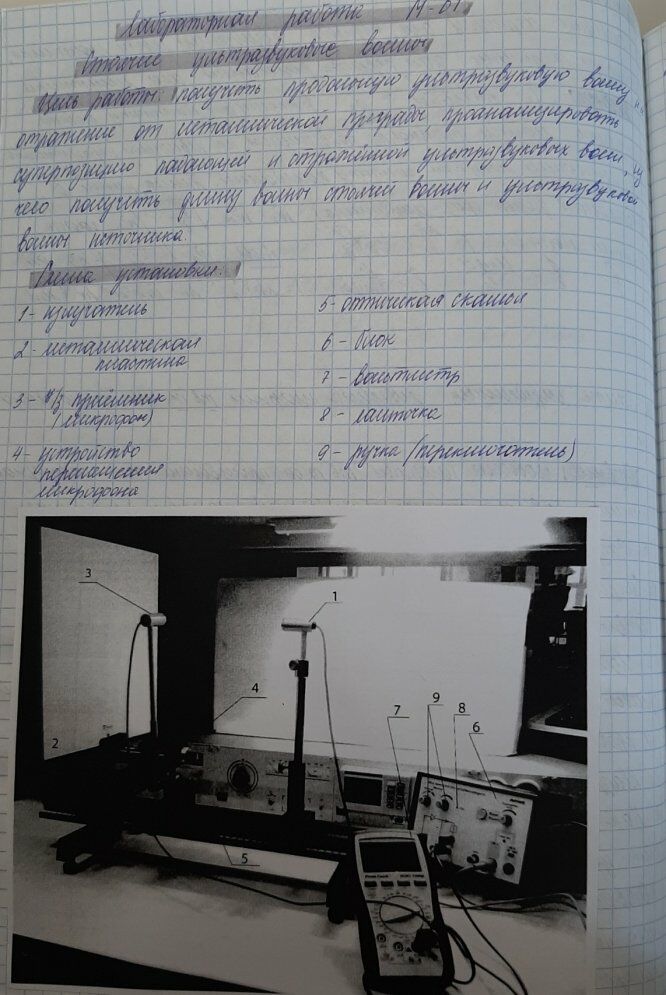 Лабораторная работа 14-01
Стоячие ультразвуковые волны
Цель работы: получить продольную ультразвуковую волну
отражение от металлической преграды, проанализировать
суперпозицию падающей и отражённой ультразвуковых волн, из
чего получить длину волны стоячей волны и ультразвуковой
волны источника.
Схема установки:
1- излучатель
2- металлическая
пластина
3 - У/З приёмник
(микрофон)
4- устройство
перемещения
микрофона
5- оптическая скамья
6 - блок
7 - вольтметр
8 - лампочка
9 - ручка (переключатель)
3
1
4
7
9
8
6
2
5